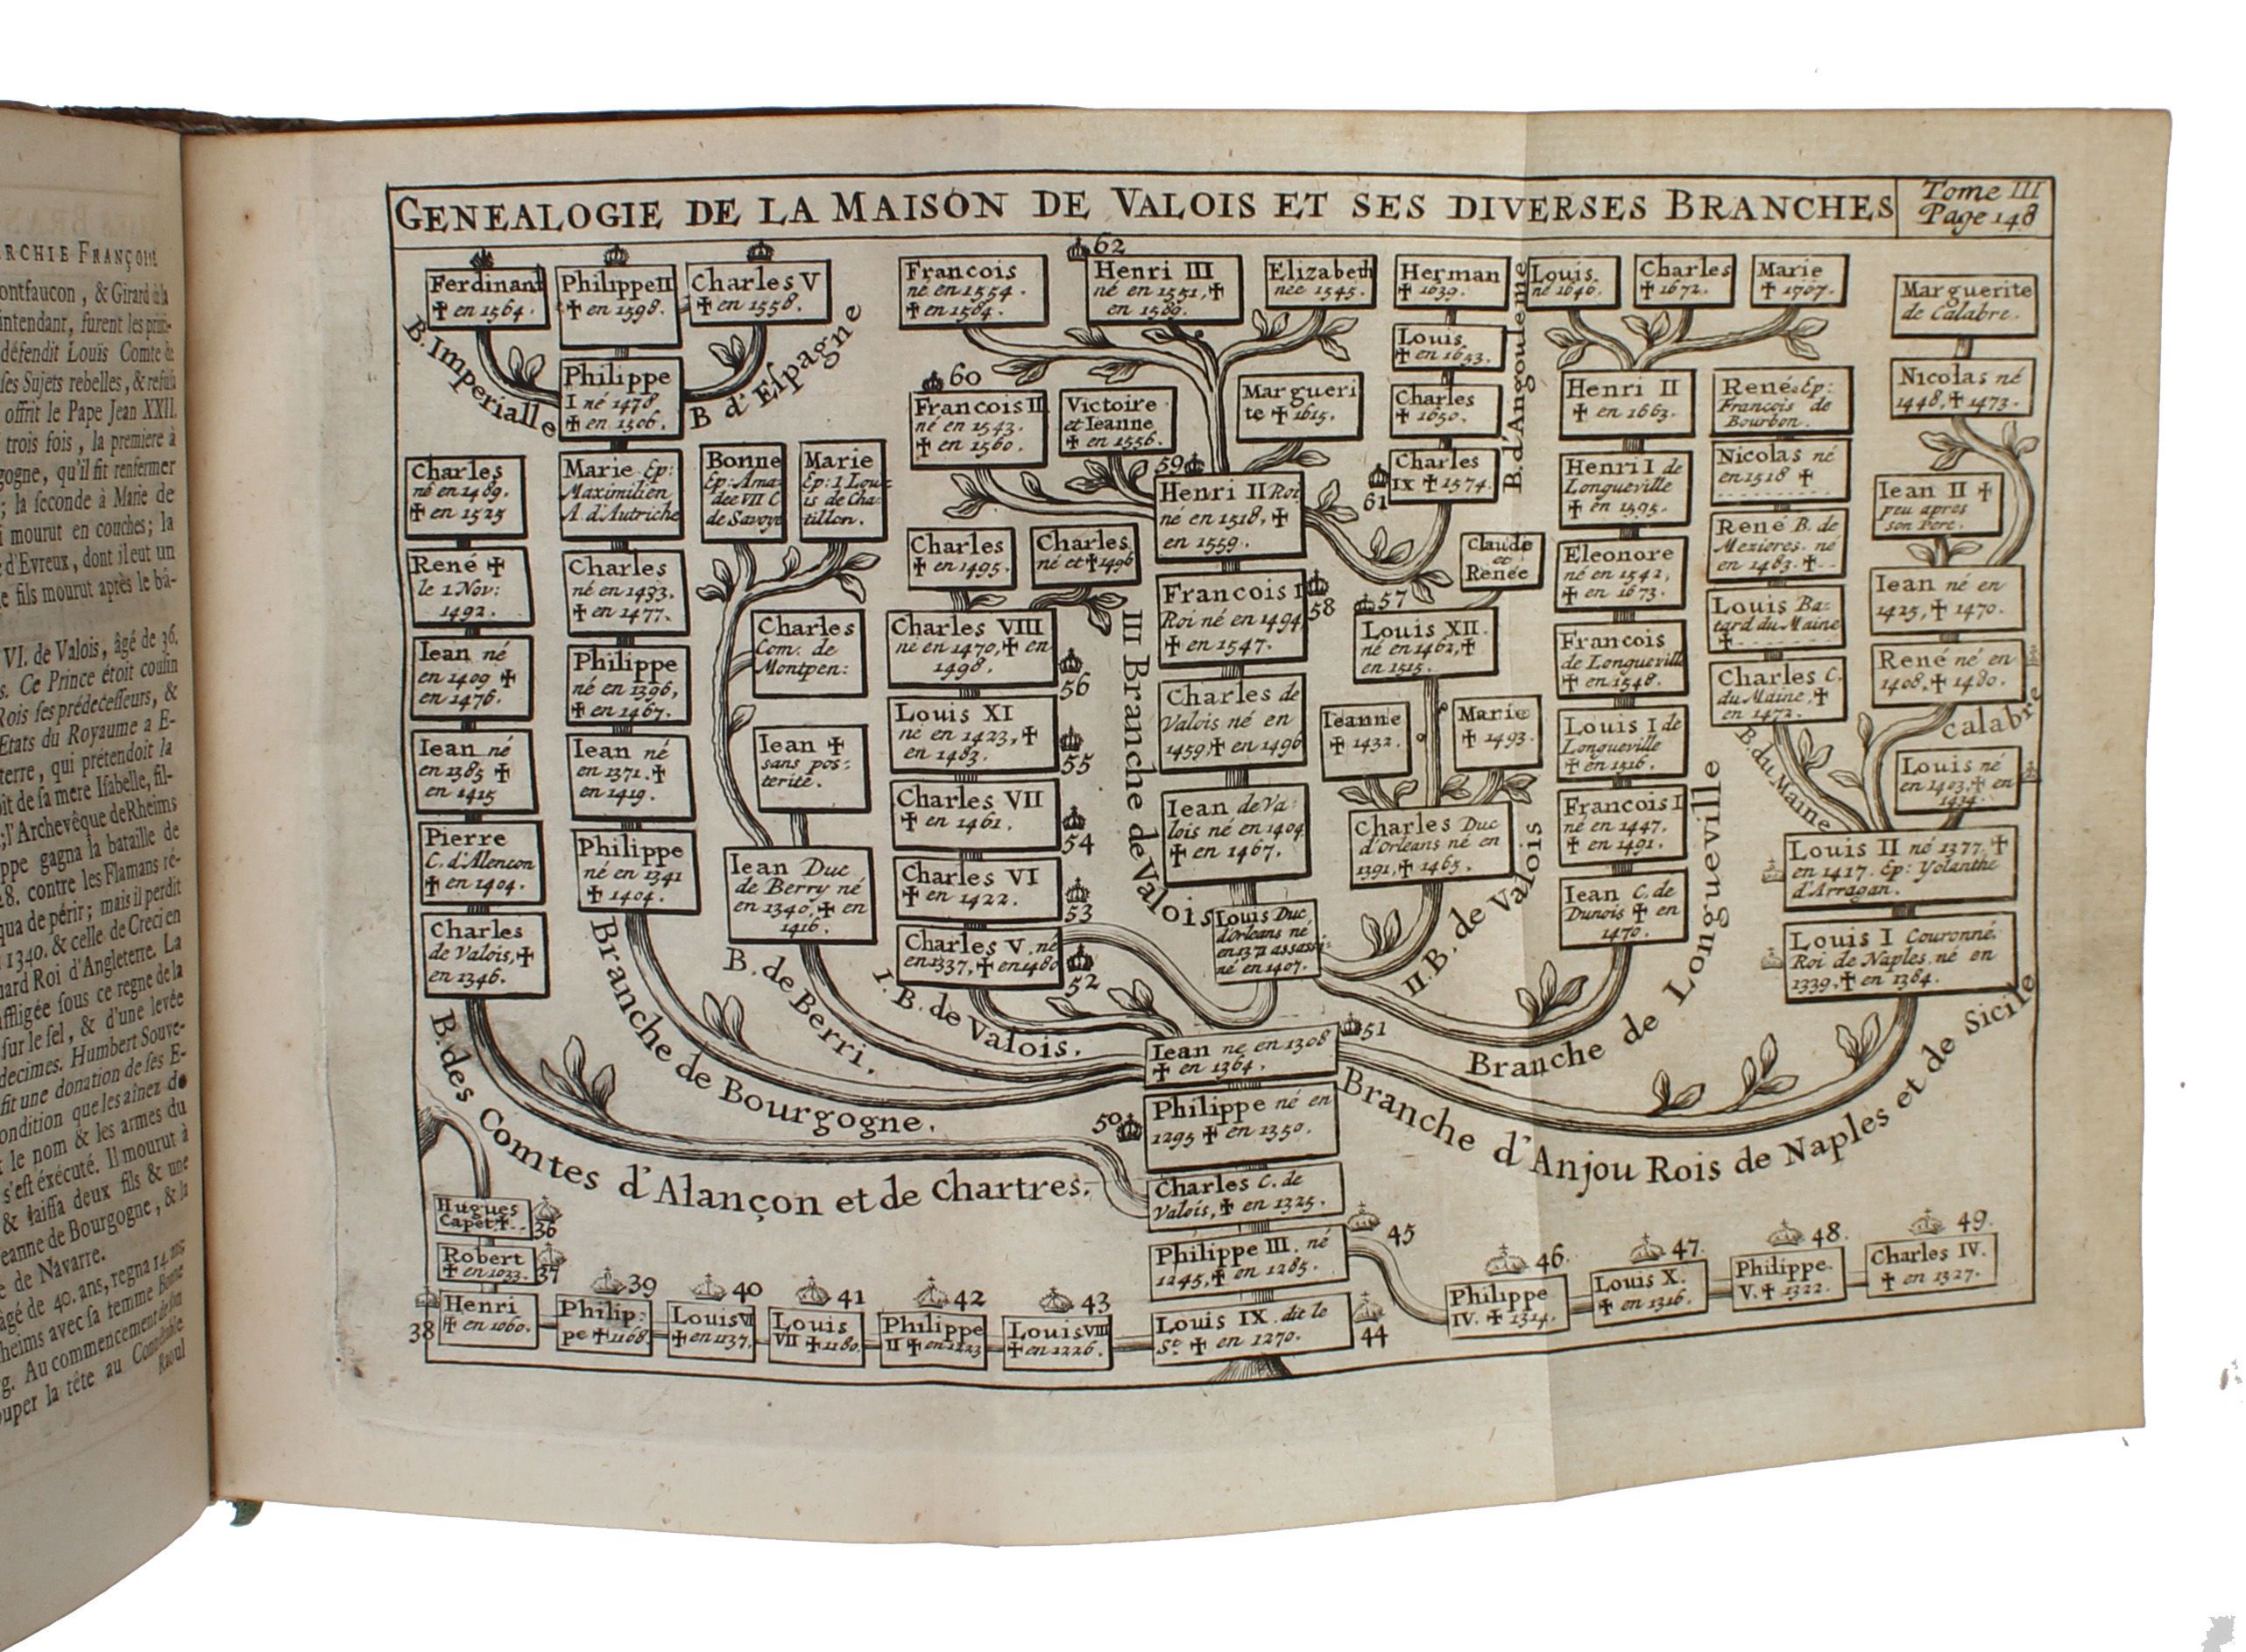 RCHIE FRANÇOISE
ontfaucon, & Girard de la
intendant, furent les prin-
défendit Louïs Comte de
ses Sujets rebelles, & refusa
offrit le Pape Jean XXII.
trois fois, la premiere à
gogne, qu'il fit renfermer
; la seconde à Marie de
i mourut en couches; la
d'Evreux, dont il eut un
e fils mourut après le bâ-
VI. de Valois, âgé de 36.
s. Ce Prince étoit cousin
Rois ses prédecesseurs, &
Etats du Royaume a E-
terre, qui prétendoit la
oit de sa mere Isabelle, fil-
; l'Archevêque de Rheims
ppe gagna la bataille de
28. contre les Flamans ré-
qua de périr; mais il perdit
1340. & celle de Creci en
uard Roi d'Angleterre. La
affligée sous ce regne de la
sur le sel, & d'une levée
decimes. Humbert Souve-
fit une donation de ses E-
ondition que les aînez de
t le nom & les armes du
s'est éxécuté. Il mourut à
& laissa deux fils & une
eanne de Bourgogne, & la
e de Navarre.
âgé de 40. ans, regna 14. ans
heims avec sa femme Bonne
g. Au commencement de son
ouper la tête au Connétable
Raoul
GENEALOGIE DE LA MAISON DE VALOIS ET SES DIVERSES BRANCHES
Tome III
Page 148
Ferdinant
✝ en 1564.
Philippe II
✝ en 1598.
Charles V
✝ en 1558.
B. Imperialle
B d'Espagne
Philippe
I né 1478
✝ en 1506.
Charles
né en 1489.
✝ en 1525
Marie Ep:
Maximilien
A. d'Autriche
Bonne
Ep: Ama-
dee VII C
de Savoye
Marie
Ep: 1 Lou-
is de Cha-
tillon.
René ✝
le 1 Nov:
1492.
Charles
né en 1433.
✝ en 1477.
Iean né
en 1409 ✝
en 1476.
Philippe
né en 1396,
✝ en 1467.
Charles
Com. de
Montpen:
Iean né
en 1385 ✝
en 1415
Iean né
en 1371. ✝
en 1419.
Iean ✝
sans pos-
terité.
Pierre
C. d'Alencon
✝ en 1404.
Philippe
né en 1341
✝ 1404.
Iean Duc
de Berry né
en 1340, ✝ en
1416.
Charles
de Valois, ✝
en 1346.
B. des Comtes d'Alançon et de Chartres.
Branche de Bourgogne.
B. de Berri.
I. B. de Valois.
Francois
né en 1554.
✝ en 1584.
62
Henri III
né en 1551, ✝
en 1589.
Elizabeth
née 1545.
60
Francois II
né en 1543.
✝ en 1560.
Victoire
et Ieanne
✝ en 1556.
Margueri
te ✝ 1615.
59
Henri II Roi
né en 1518, ✝
en 1559.
Charles
✝ en 1495.
Charles
né et ✝ 1496
Francois I
Roi né en 1494
✝ en 1547.
58
Charles VIII
né en 1470, ✝ en
1498.
56
Charles de
Valois né en
1459, ✝ en 1496
Louis XI
né en 1423, ✝
en 1483.
55
Iean de Va-
lois né en 1404
✝ en 1467.
Charles VII
✝ en 1461.
54
Charles VI
✝ en 1422.
53
Charles V. né
en 1337, ✝ en 1480
52
III Branche de Valois
Louis Duc
d'Orleans né
en 1371 assassi-
né en 1407.
Herman
✝ 1639.
Louis
✝ en 1653.
Charles
✝ 1650.
Charles
IX ✝ 1574.
61
B. d'Angouleme
Claude
et
Renée
57
Louis XII.
né en 1462, ✝
en 1515.
Ieanne
✝ 1432.
Marie
✝ 1493.
Charles Duc
d'Orleans né en
1391, ✝ 1465.
II. B. de Valois
Louis
né 1646.
Charles
✝ 1672.
Marie
✝ 1707.
Henri II
✝ en 1663.
Henri I de
Longueville
✝ en 1595.
Eleonore
né en 1542,
✝ en 1673.
Francois
de Longueville
✝ en 1548.
Louis I de
Longueville
✝ en 1516.
Francois I
né en 1447.
✝ en 1491.
Iean C. de
Dunois ✝ en
1470.
Branche de Longueville
René Ep:
Francois de
Bourbon.
Nicolas né
en 1518 ✝
René B. de
Mezieres né
en 1483. ✝
Louis Ba-
tard du Maine
✝
Charles C.
du Maine, ✝
en 1472.
B. du Maine
Marguerite
de Calabre.
Nicolas né
1448, ✝ 1473.
Iean II ✝
peu apres
son Pere.
Iean né en
1425, ✝ 1470.
René né en
1408, ✝ 1480.
calabre
Louis né
en 1403 ✝ en
1434.
Louis II né 1377. ✝
en 1417. Ep: Yolanthe
d'Arragan.
Louis I Couronné
Roi de Naples né en
1339, ✝ en 1384.
Branche d'Anjou Rois de Naples et de Sicile
Iean né en 1308
✝ en 1364.
51
50
Philippe né en
1295 ✝ en 1350.
Charles C. de
Valois, ✝ en 1325.
Philippe III. né
1245, ✝ en 1285.
45
Hugues
Capet ✝
36
Robert
✝ en 1033.
37
38
Henri
✝ en 1060.
39
Philip:
pe ✝ 1168
40
Louis VI
✝ en 1137.
41
Louis
VII ✝ 1180.
42
Philippe
II ✝ en 1223
43
Louis VIII
✝ en 1226.
Louis IX dit le
St. ✝ en 1270.
44
46.
Philippe
IV. ✝ 1314.
47.
Louis X.
✝ en 1316.
48.
Philippe
V. ✝ 1322.
49.
Charles IV.
✝ en 1327.